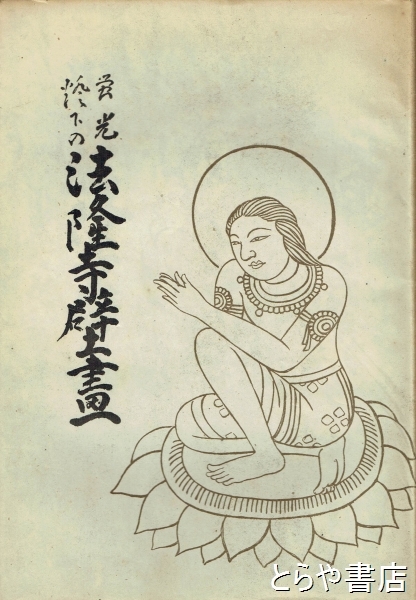 螢光
燈下の
法隆寺壁畫
とらや書店